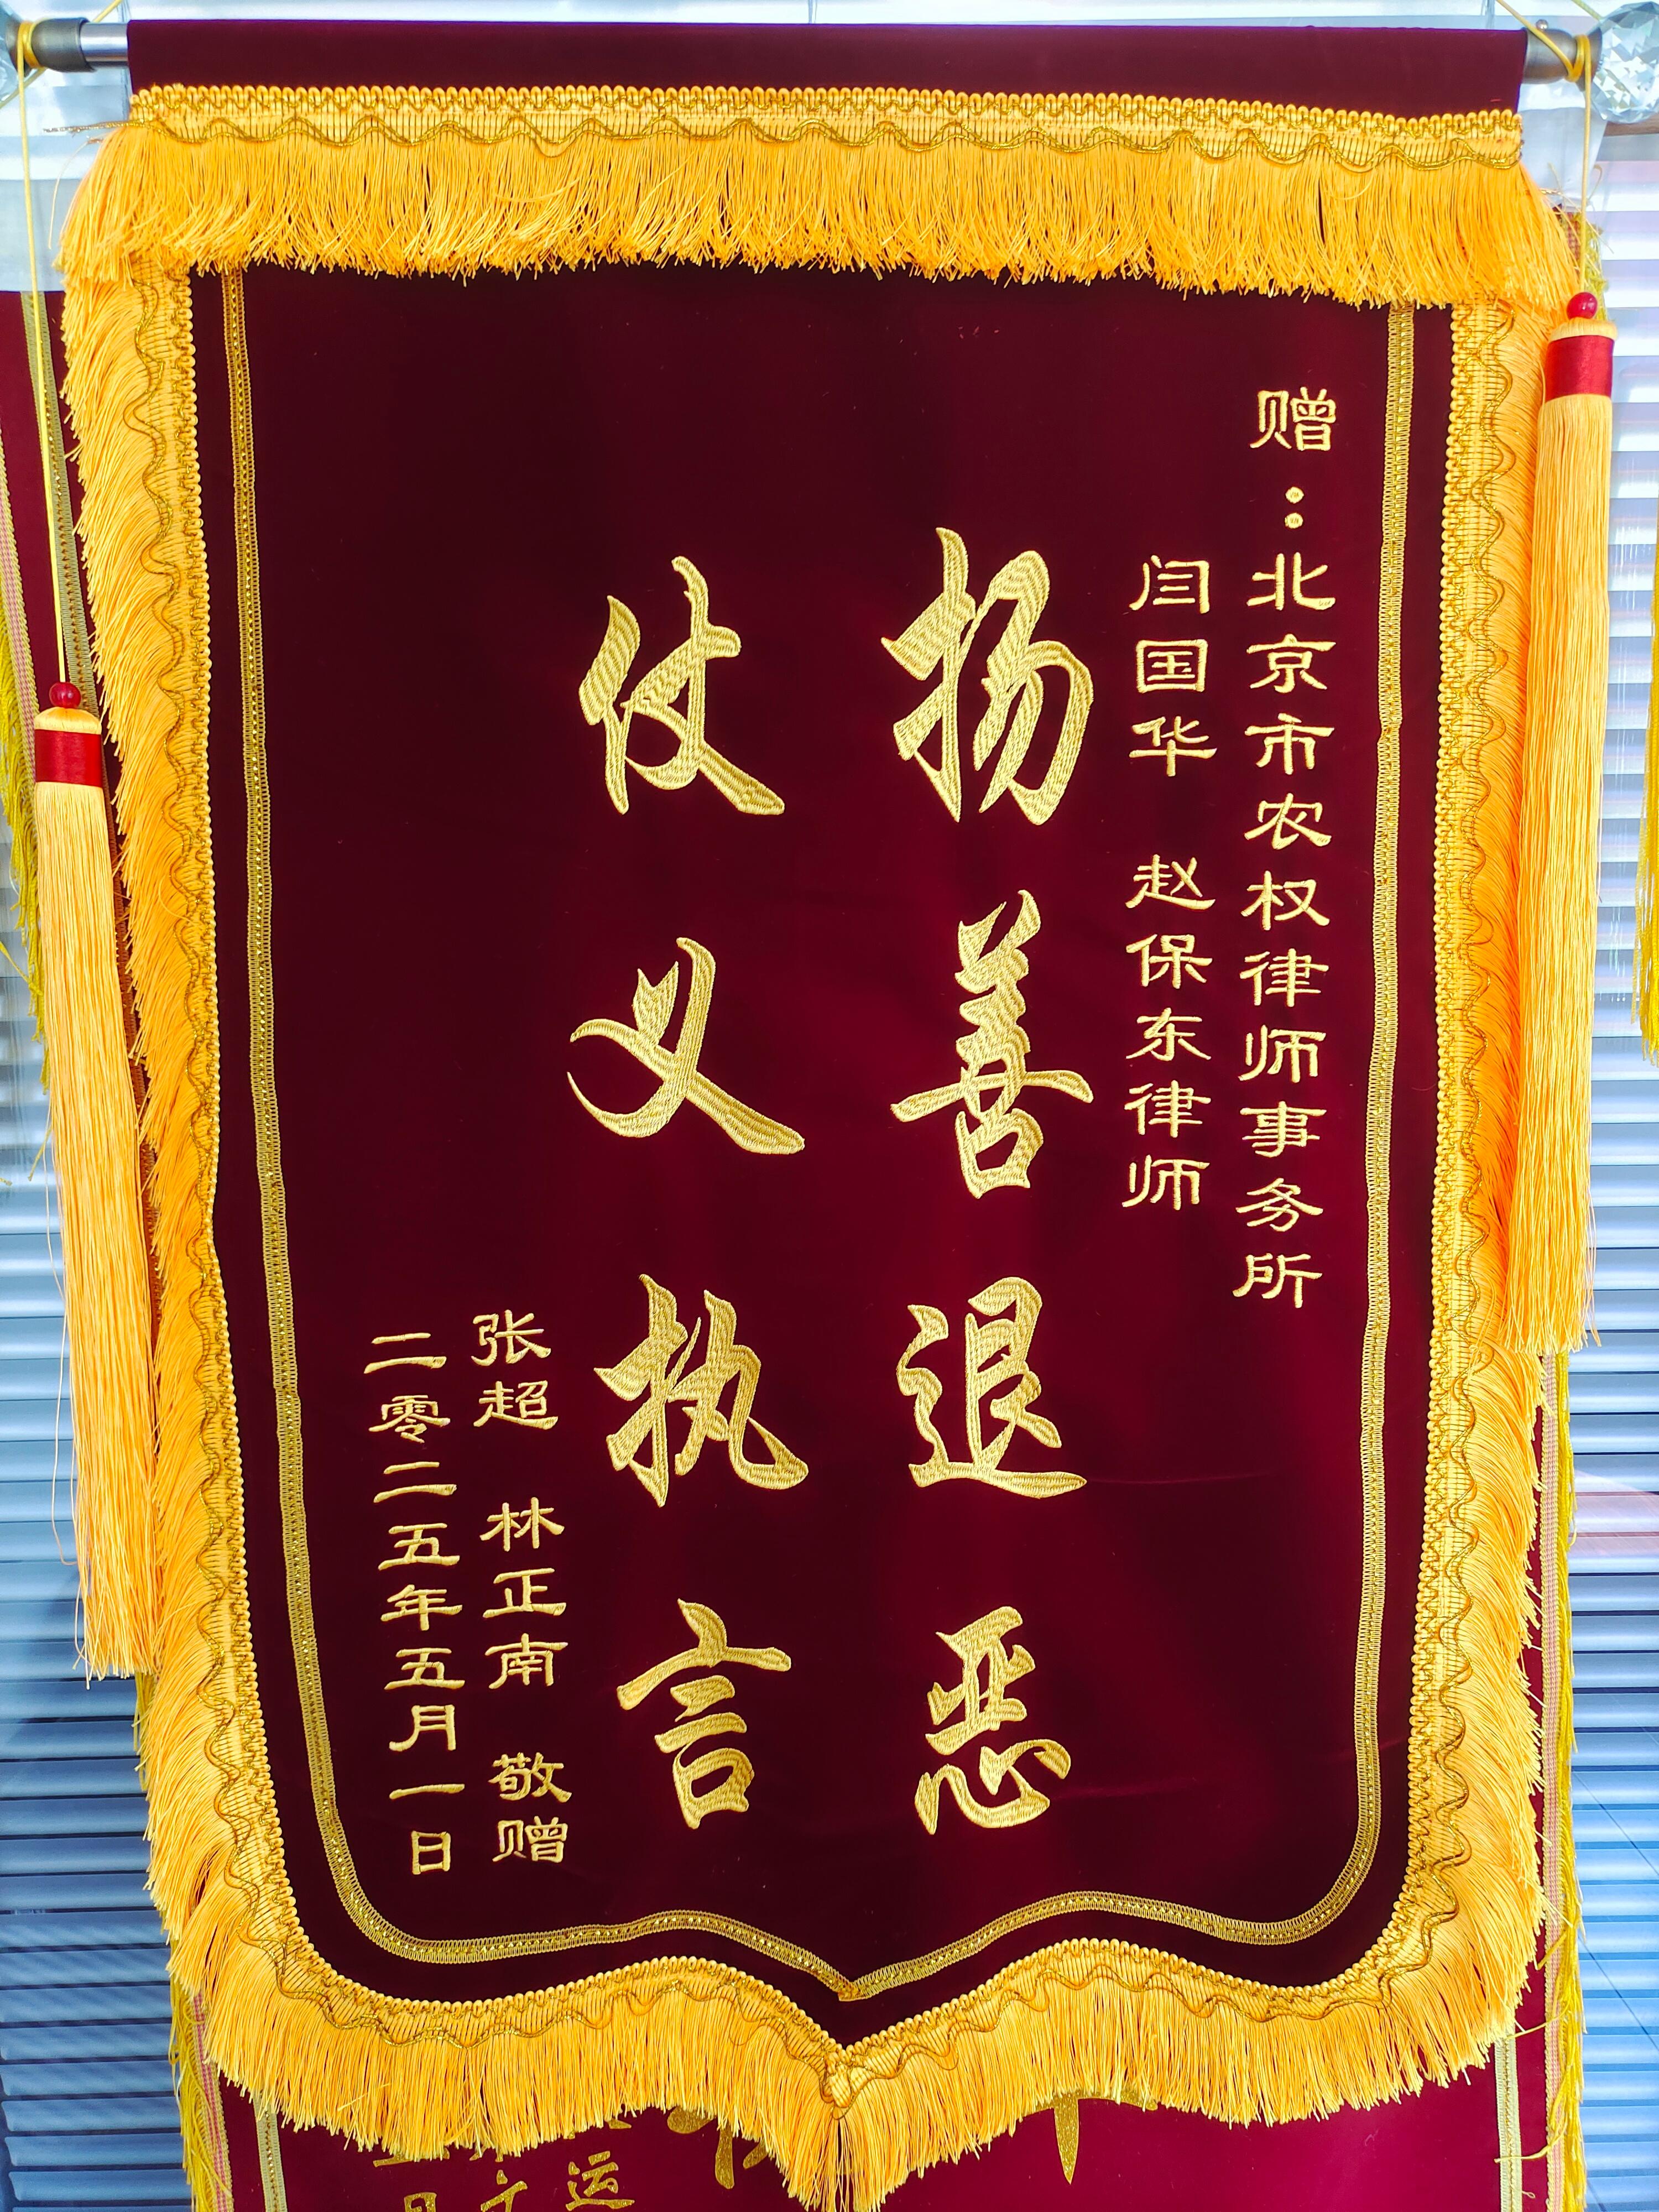 赠：北京市农权律师事务所
闫国华 赵保东律师
扬善退恶
仗义执言
张超 林正南 敬赠
二零二五年五月一日
运